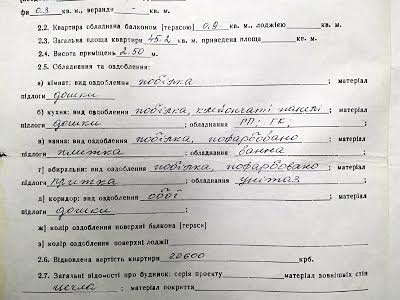 фи 0.3 кв. м, веранди - кв. м.
2.2. Квартира обладнана балконом [терасою] 0.9 кв. м, лоджією кв. м.
2.3. Загальна площа квартири 45.2 кв. м, приведена площа кв. м.
2.4. Висота приміщень 2.50 м.
2.5. Обладнання та оздоблення:
а) кімнат: вид оздоблення побілка ; матеріал
підлоги дошки
б) кухня: вид оздоблення побілка, панелі
підлоги дошки ; обладнання РП; ГК ;
в) ванна: вид оздоблення побілка, пофарбовано ; матеріал
підлоги плитка ; обладнання ванна ;
г) вбиральня: вид оздоблення побілка, пофарбовано ; матеріал
підлоги плитка ; обладнання унітаз ;
д) коридор: вид оздоблення обої ; матеріал
підлоги дошки ;
ж) колір оздоблення поверхні балкона [терас]
з) колір оздоблення поверхні лоджії
2.6. Відновлена вартість квартири 22600 крб.
2.7. Загальні відомості про будинок: серія проекту матеріал зовнішніх стін
цегла ; матеріал покриття